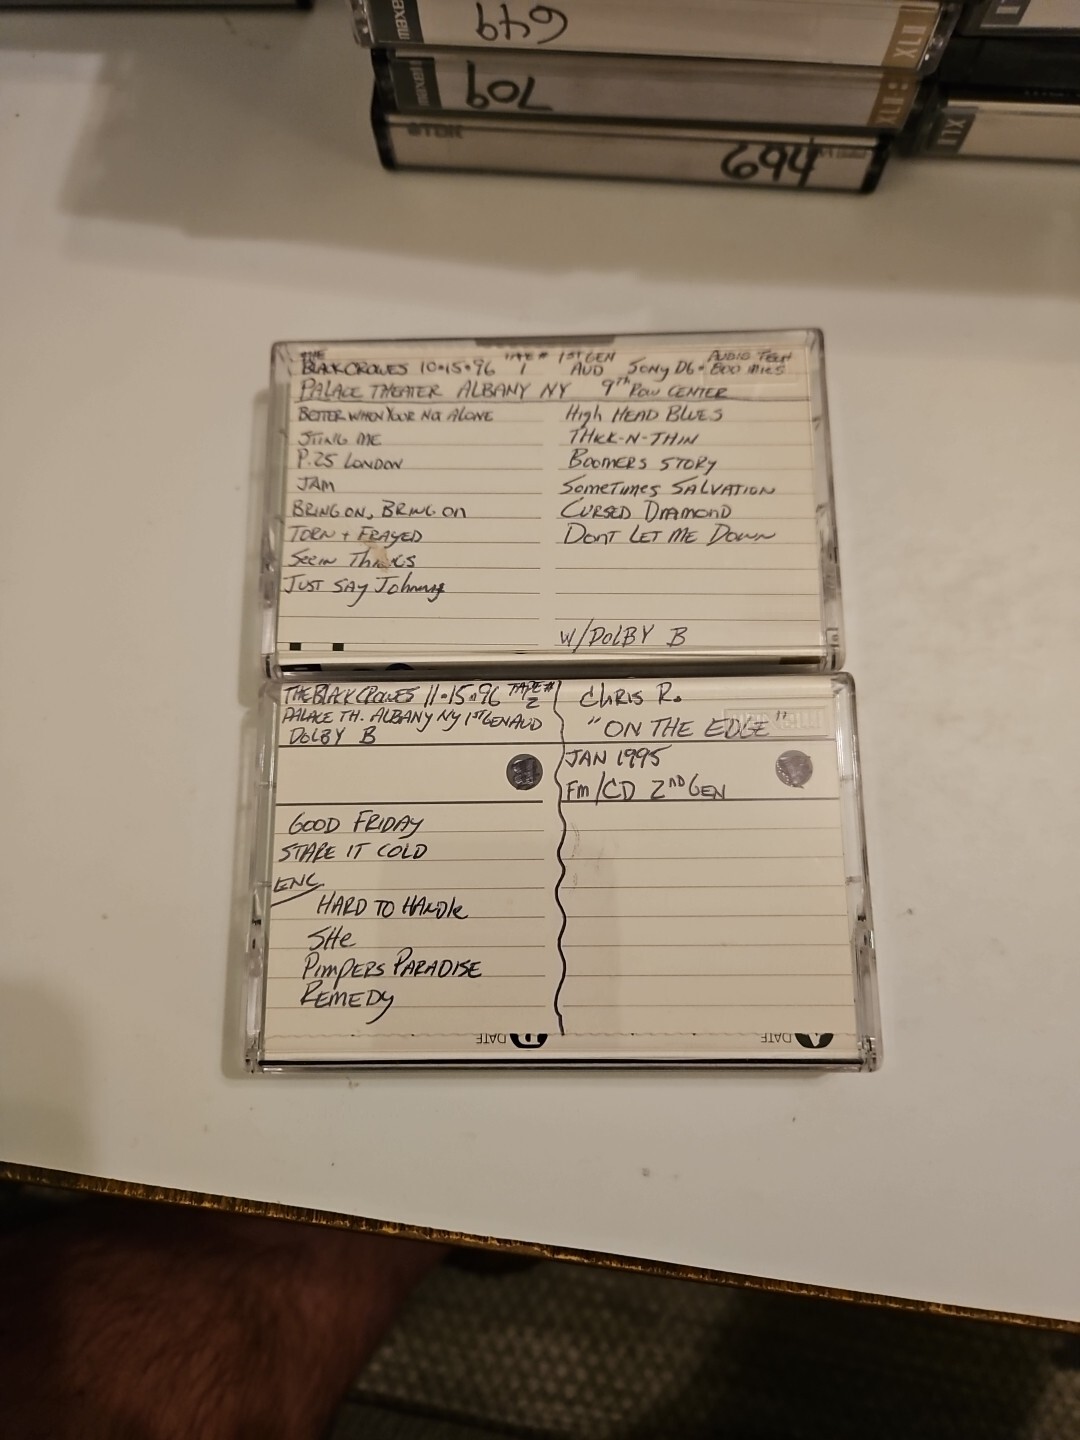 maxell
649
XLII
maxell
709
XLII
TDK
694
XLI
THE
BLACK CROWES 10·15·96 TAPE # 1 1ST GEN AUD SONY D6· AUDIO TECH 800 Mics
PALACE THEATER ALBANY NY 9th ROW CENTER
BETTER WHEN YOUR NOT ALONE
STING ME
P.25 LONDON
JAM
BRING ON, BRING ON
TORN + FRAYED
SEEIN THINGS
JUST SAY Johnny
High HEAD BLUES
THICK-N-THIN
BOOMERS STORY
SOMETIMES SALVATION
CURSED DIAMOND
DONT LET ME DOWN
W/DOLBY B
THE BLACK CROWES 11·15·96 TAPE # 2
PALACE TH. ALBANY NY 1ST GEN AUD
DOLBY B
GOOD FRIDAY
STARE IT COLD
ENC.
HARD TO HANDLE
SHe
PIMPERS PARADISE
REMEDY
Chris R.
"ON THE EDGE"
JAN 1995
FM/CD 2ND GEN
B DATE
A DATE